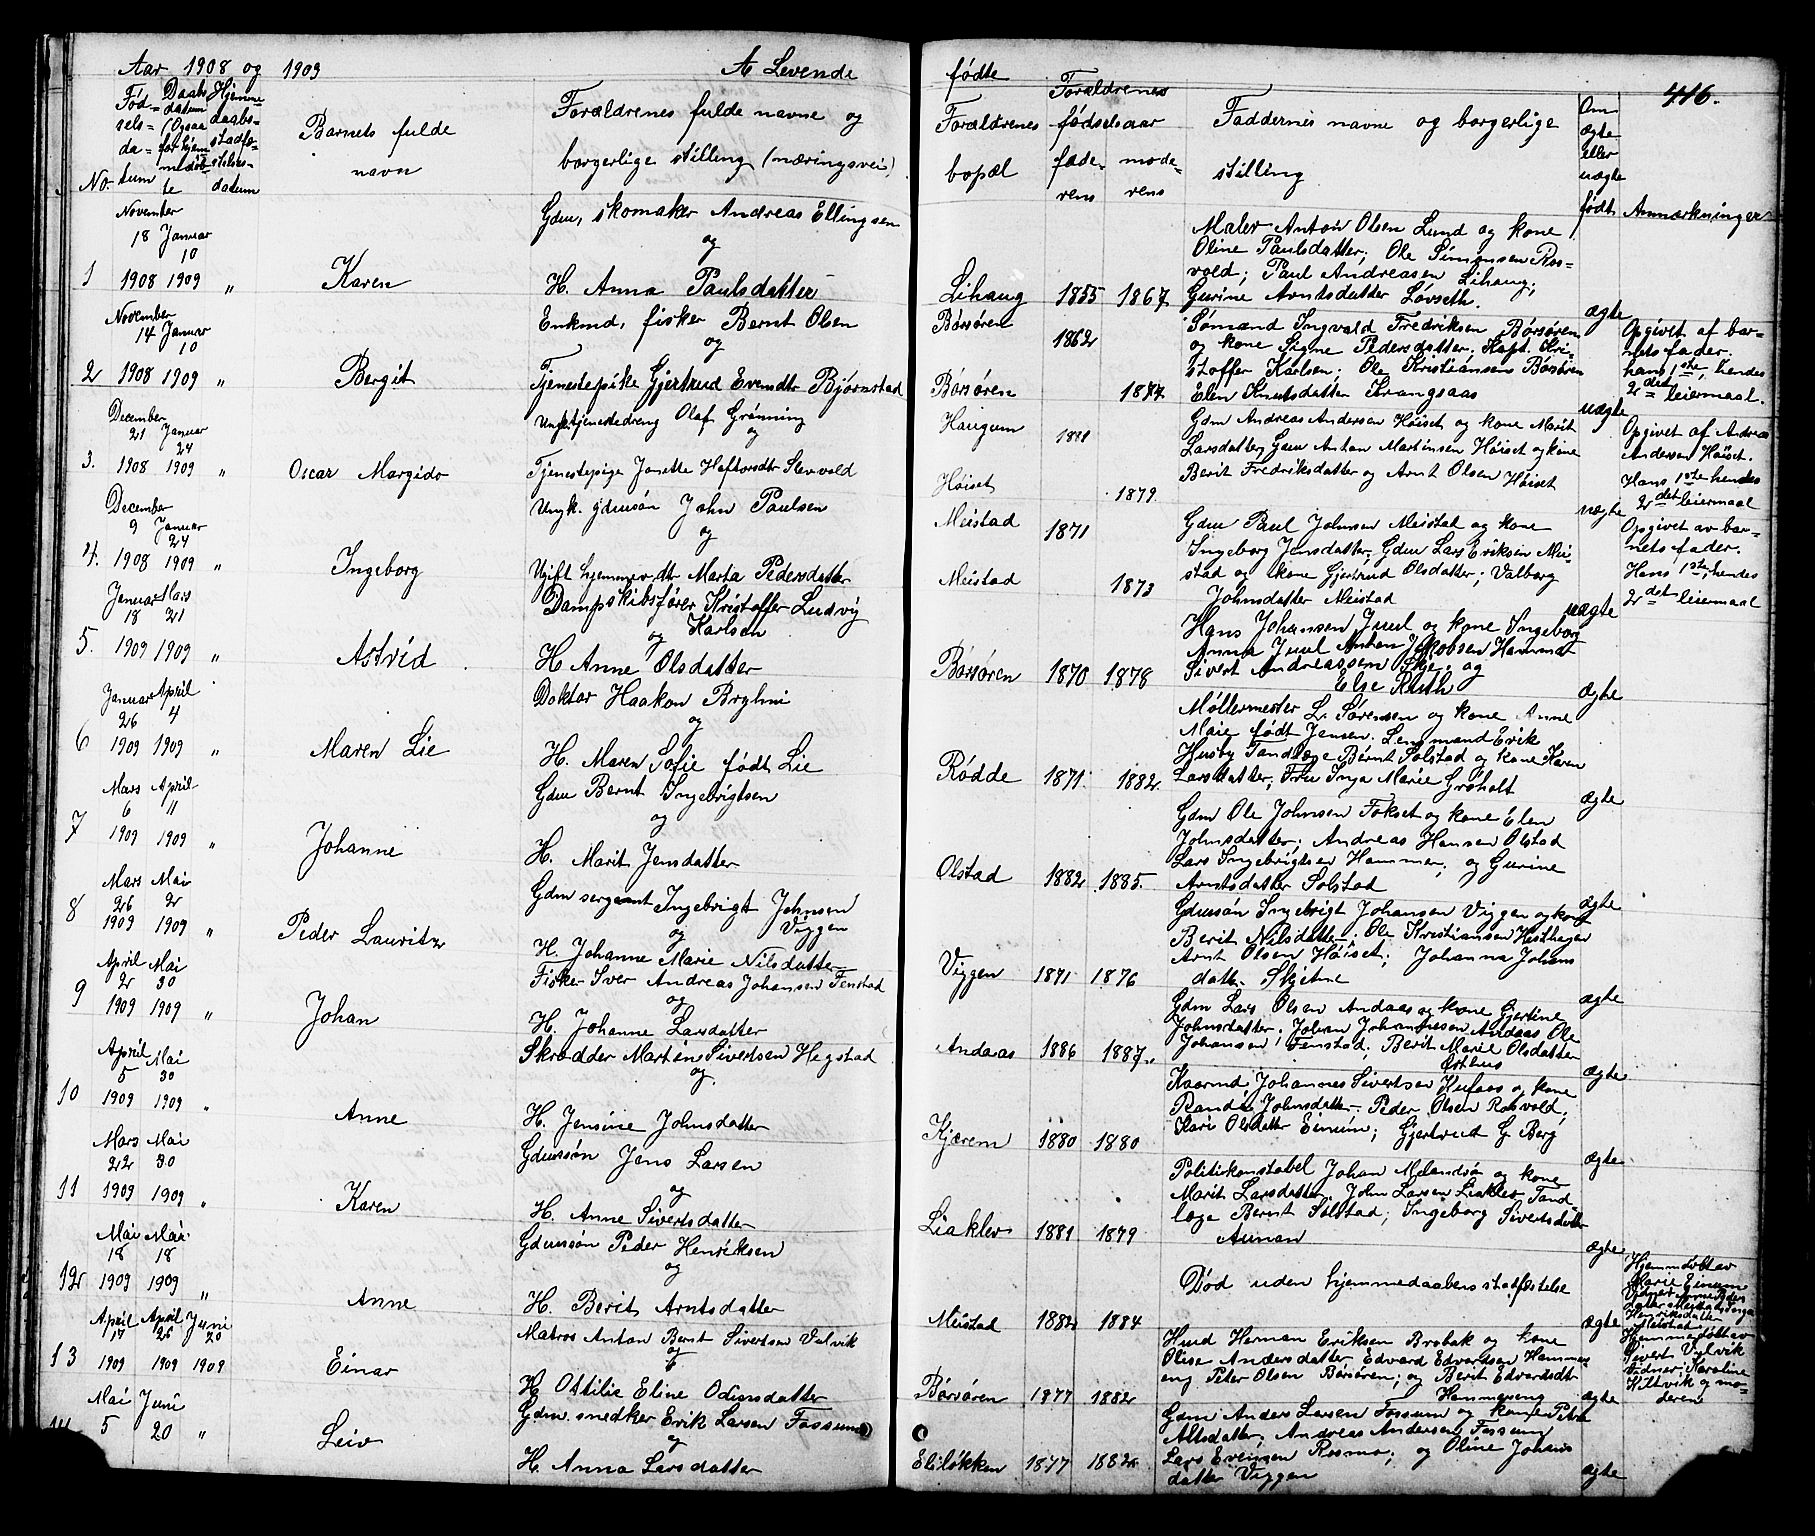 Aar 1908 og 1909
A Levende
No.
Fødselsdatum
Daabsdatum (Ogsaa for hjemmedøbte
Hjemmedaabsstadfæstelsesdatum
Barnets fulde navn
Forældrenes fulde navne og
borgerlige stilling (næringsvei)
November
18 Januar
10
1 1908 1909 „ Karen
Gdm, skomaker Andreas Ellingsen
og
H. Anna Paulsdatter
November
14 Januar
10
2 1908 1909 „ Bergit
Enkmd, fisker Bernt Olsen
og
Tjenestepike Gjertrud Evendtr Bjørnstad
December
21 Januar
24
3. 1908 1909 „ Oscar Margido
Ungk tjenestedreng Olaf Grønning
og
Tjenestepige Jonette Haftorsdtr Slevold
December
9 Januar
24
4. 1908 1909 „ Ingeborg
Ungk. gdmsøn John Paulsen
og
Ugift hjemmev. dtr Marta Pedersdatter
Januar Mars
18 21
5. 1909 1909 „ Astrid
Dampskibsfører Kristoffer Ludvig
Karlsen
og
H Anne Olsdatter
Januar April
26 4
6 1909 1909 „ Maren Lie
Doktor Haakon Bryhni
og
H. Maren Sofie født Lie
Mars April
6 11
7 1909 1909 „ Johanne
Gdm Bernt Ingebrigtsen
og
H. Marit Jensdatter
Mars Mai
26 2
8 1909 1909 „ Peder Lauritz
Gdm sergeant Ingebrigt Johnsen
Viggen
og
H. Johanne Marie Nilsdatter
April Mai
2 30
9 1909 1909 „ Johan
Fisker Iver Andreas Johansen Fenstad
og
H. Johanne Larsdatter
April Mai
5 30
10 1909 1909 „ Anne
Skrædder Martin Sivertsen Hegstad
og
H. Jensine Johnsdatter
Mars Mai
22 30
11 1909 1909 „ Karen
Gdmsøn Jens Larsen
og
H. Anne Sivertsdatter
Mai Mai
18 18
12 1909 1909 „ Anne
Gdmsøn Peder Henriksen
og
H. Berit Arntsdatter
April April Juni
17 26 20
13 1909 1909 1909 Einar
Matros Anton Bernt Sivertsen Valvik
og
H Ottilie Eline Odinsdatter
Mai Juni
5 20 „ Leiv
Gdm. snedker Erik Larsen Fossum
og
H. Anna Larsdatter
fødte
416.
Forældrenes bopæl
Forældrenes fødselsaar
faderens moderens
Faddernes navne og borgerlige
stilling
Om ægte eller uægte født
Anmærkninger
Maler Anton Olsen Lund og kone
Oline Paulsdatter; Ole Simonsen Rosvold;
Paul Andreasen Lihaug;
Lihaug 1855 1867 Gurine Arntsdatter Løvseth. ægte
Børsøren 1862
Sømand Ingvald Fredriksen Børsøren
og kone Signe Pedersdatter. Kapt. Kristoffer
Karlsen; Ole Kristiansen Børsøren
Børsøren 1887 Elen Knutsdatter Krangsaas uægte
Opgivet af barnets
fader.
hans 1ste, hendes
2det leiermaal.
Haugum
Gdm Andreas Andersen Høiset og kone Marit
Larsdatter Gdm Anton Martinsen Høiset og kone
Berit Fredriksdatter og Arnt Olsen Høiset
Høiset 1879 uægte
Opgivet af Andreas
Andersen Høiset.
Hans 1ste hendes
2det leiermaal
Meistad 1871
Gdm Paul Johnsen Meistad og kone
Ingeborg Jensdatter; Gdm Lars Eriksen Meistad
og kone Gjertrud Olsdatter; Valborg
Johnsdatter Meistad
Meistad 1873 uægte
Opgivet av barnets
fader.
Hans 1ste, hendes
2det leiermaal
Hans Johansen Juul og kone Ingeborg
Anna Juul Anton Jakobsen Hammer
Sivert Andreassen Skje; og
Else Ruth
Børsøren 1870 1878 ægte
Møllermester L. Sørensen og kone Anne
Marie født Jensen. Lensmand Erik
Husby Tandlæge Bernt Solstad og kone Karen
Larsdatter; Fru Inga Marie Grøholt
Rødde 1871. 1882. ægte
Gdm Ole Johnsen Fokset og kone Elen
Johnsdatter; Andreas Hansen Olstad
Lars Ingebrigtsen Hammer; og Gurine
Arntsdatter Solstad
Olstad 1882 1885. ægte
Gdmsøn Ingebrigt Johansen Viggen og kone
Berit Nilsdatter; Ole Kristiansen Hesthagen
Arnt Olsen Høiset; Johanna Johansdatter
Skjetne
Viggen 1871 1876 ægte
Gdm Lars Olsen Andaas og kone Gjertine
Johnsdatter; Johan Johannesen Andaas Ole
Johansen Fenstad; Berit Marie Olsdatter
Andaas 1886 1887. ægte
Kaarmd Johannes Sivertsen Kufaas og kone
Randi Johnsdatter; Peder Olsen Rosvold;
Kari Olsdatter Einum; Gjertrud G Berg
Kjærem 1880 1880 ægte
Politikonstabel Johan Melandsø og kone
Marit Larsdatter. John Larsen Liaklev Tandlæge
Bernt Solstad; Ingeborg Sivertsdatter
Aunan
Liaklev 1881 1879 ægte
Død uden hjemmedaabens statfæstelse
Meistad 1882 1884 ægte
Hjemmedøbt av
Marie Einum
Husd Herman Eriksen Brobak og kone
Olise Andersdatter Edvard Edvardsen Hammereng
Peter Olsen Børsøren; og Berit Edvardsdtr
Hammereng
Børsøren 1877 1882 ægte
Hjemmedøbt av
Sivert Valvik
Vidner; Karoline
Hiltvik og moderen
Gdm Anders Larsen Fossum og kone Petra
Altsdatter; Andreas Andersen Fossum
Lars Evensen Rosmo; og Oline Johansdatter
Viggen
Eliløkken 1877 1882 ægte